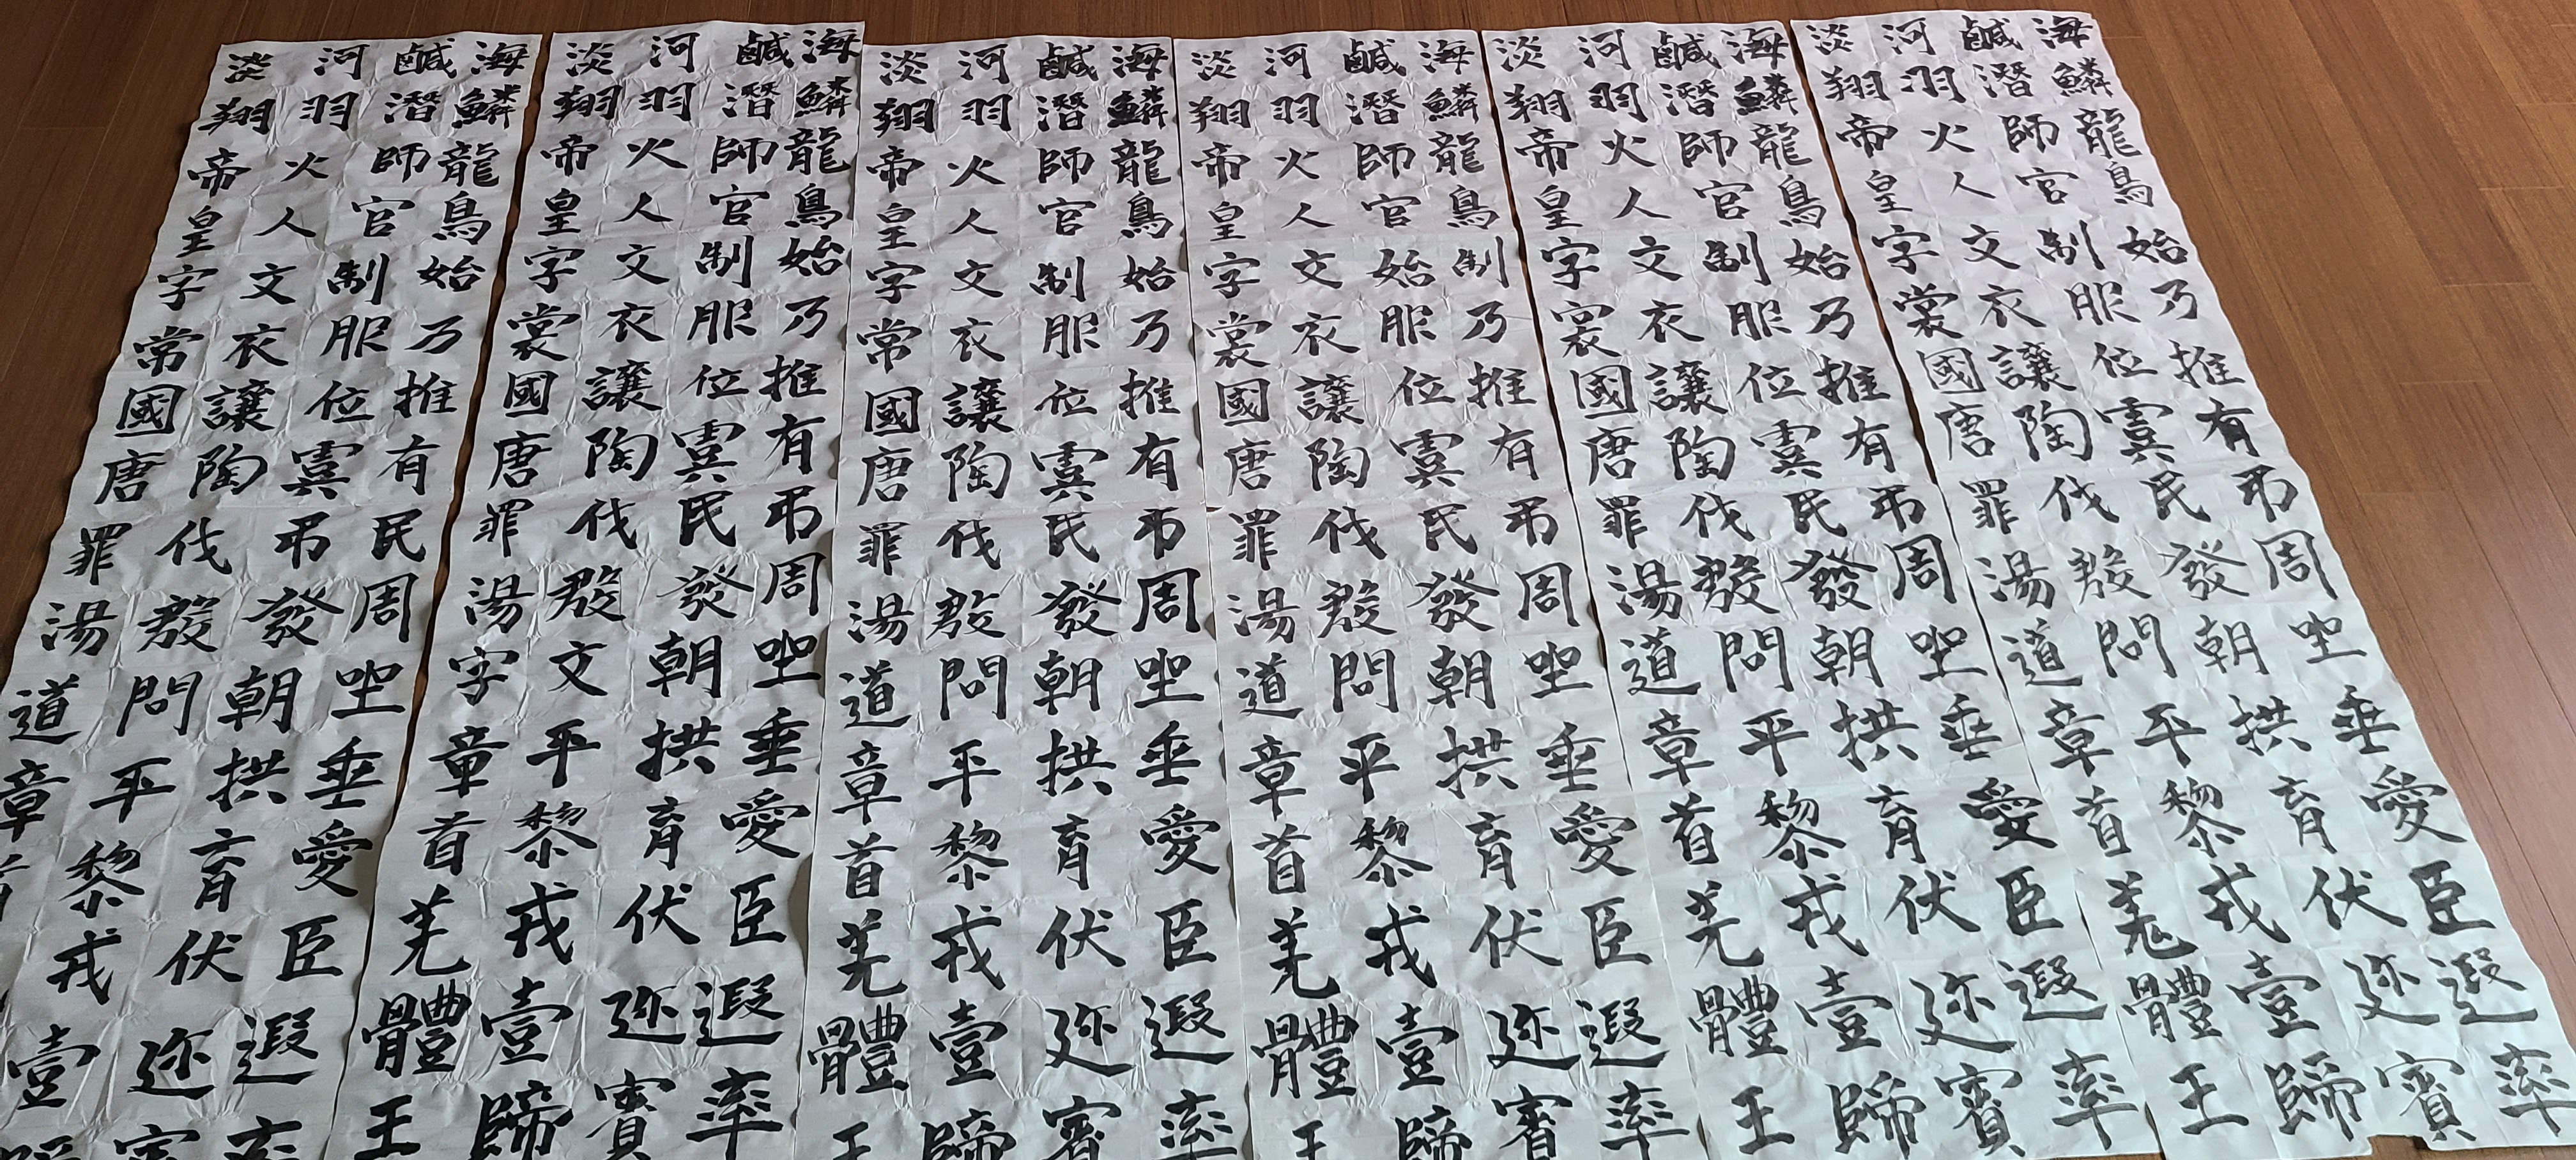 海鹹河淡
鱗潛羽翔
龍師火帝
鳥官人皇
始制文字
乃服衣裳
推位讓國
有虞陶唐
弔民伐罪
周發殷湯
坐朝問道
垂拱平章
愛育黎首
臣伏戎羌
遐迩壹體
率賓歸王
海鹹河淡
鱗潛羽翔
龍師火帝
鳥官人皇
始制文字
乃服衣裳
推位讓國
有虞陶唐
弔民伐罪
周發殷湯
坐朝問道
垂拱平章
愛育黎首
臣伏戎羌
遐迩壹體
率賓歸王
海鹹河淡
鱗潛羽翔
龍師火帝
鳥官人皇
制始文字
乃服衣裳
推位讓國
有虞陶唐
弔民伐罪
周發殷湯
坐朝問道
垂拱平章
愛育黎首
臣伏戎羌
遐迩壹體
率賓歸王
海鹹河淡
鱗潛羽翔
龍師火帝
鳥官人皇
始制文字
乃服衣常
推位讓國
有虞陶唐
弔民伐罪
周發殷湯
坐朝問道
垂拱平章
愛育黎首
臣伏戎羌
遐迩壹體
率賓歸王
海鹹河淡
鱗潛羽翔
龍師火帝
鳥官人皇
始制文字
乃服衣裳
推位讓國
有虞陶唐
弔民伐罪
周發殷湯
坐朝文字
垂拱平章
愛育黎首
臣伏戎羌
遐迩壹體
率賓歸王
海鹹河淡
鱗潛羽翔
龍師火帝
鳥官人皇
始制文字
乃服衣常
推位讓國
有虞陶唐
民弔伐罪
周發殷湯
坐朝問道
垂拱平章
愛育黎
臣伏戎
遐迩壹